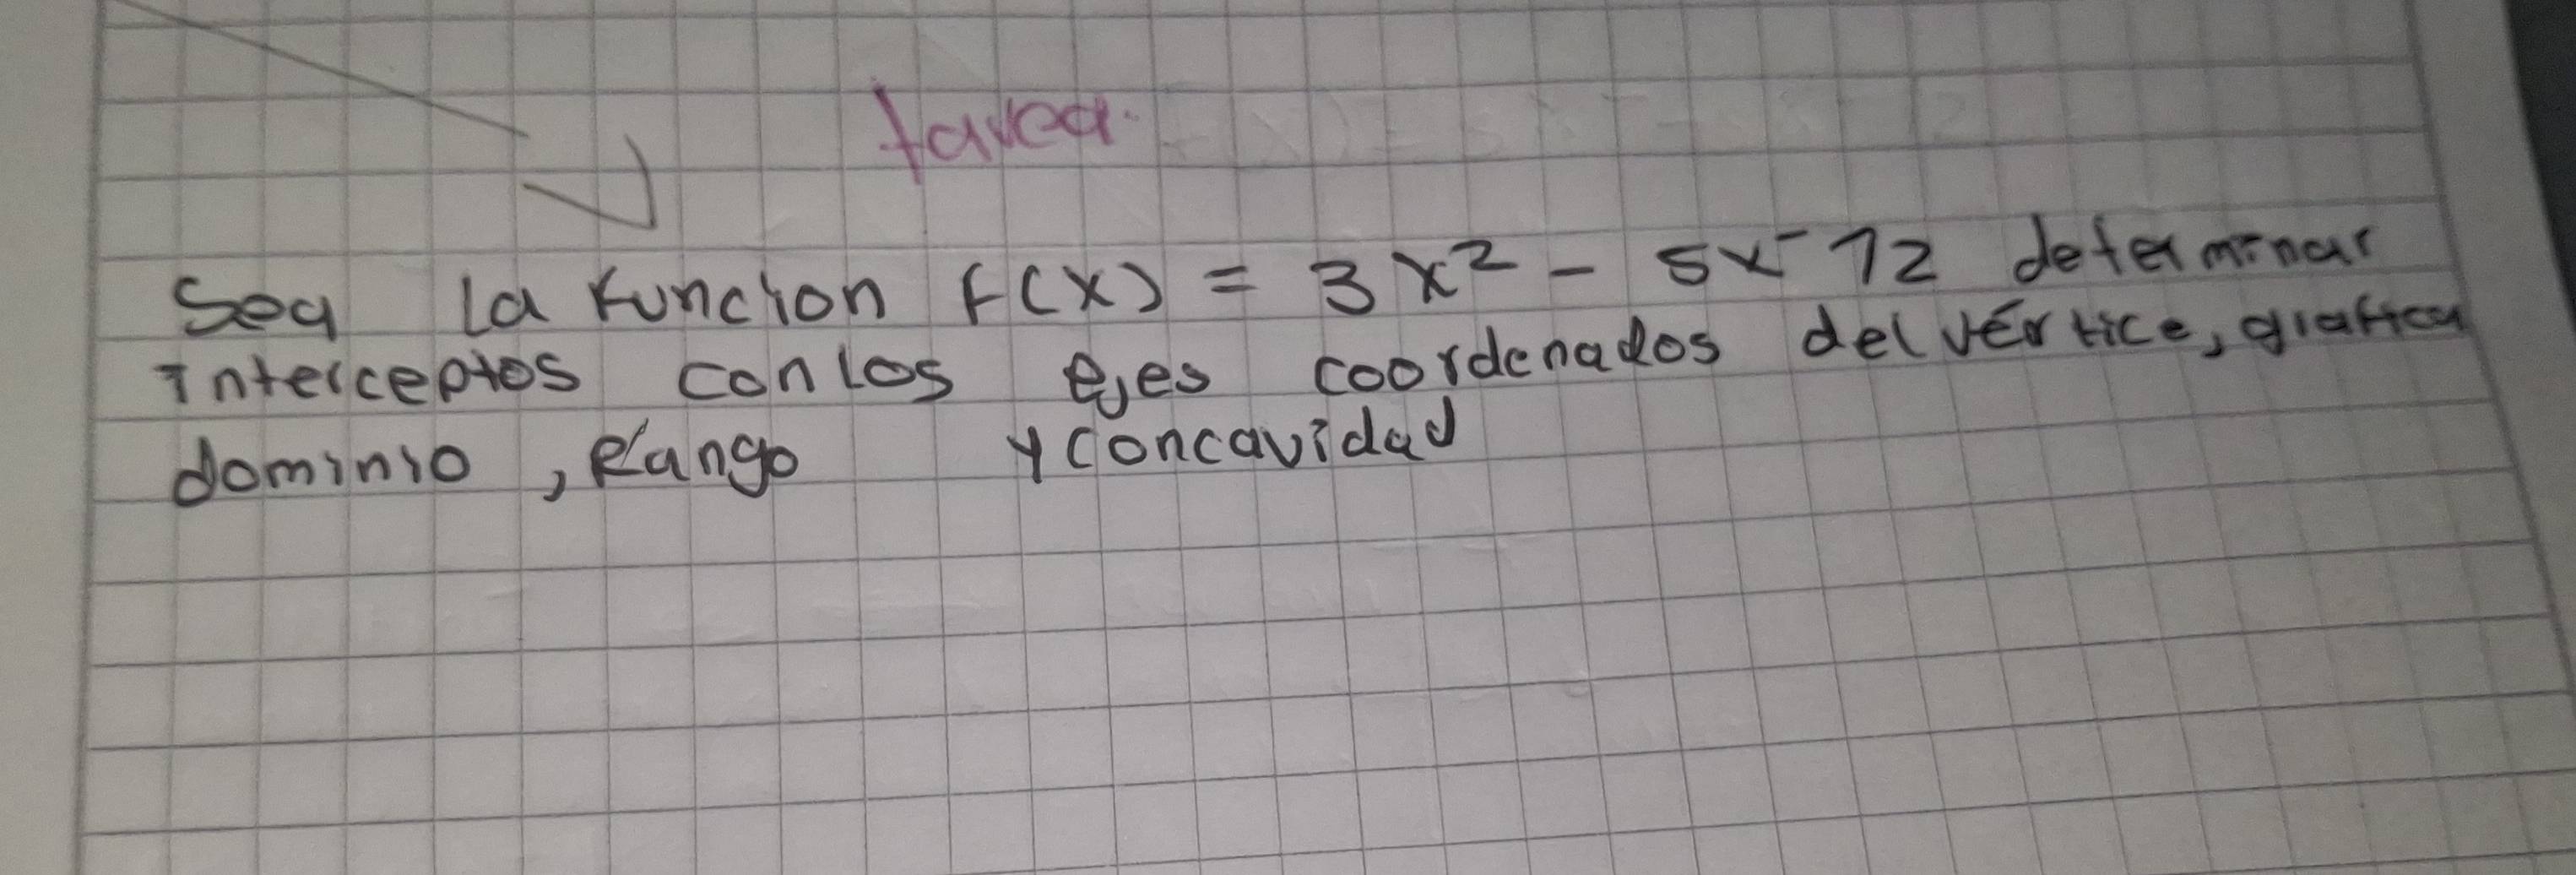 tarea.
Sea la función f(x) = 3x² - 5x - 12 determinar
interceptos con los ejes coordenados del vértice, grafica
dominio, Rango y concavidad